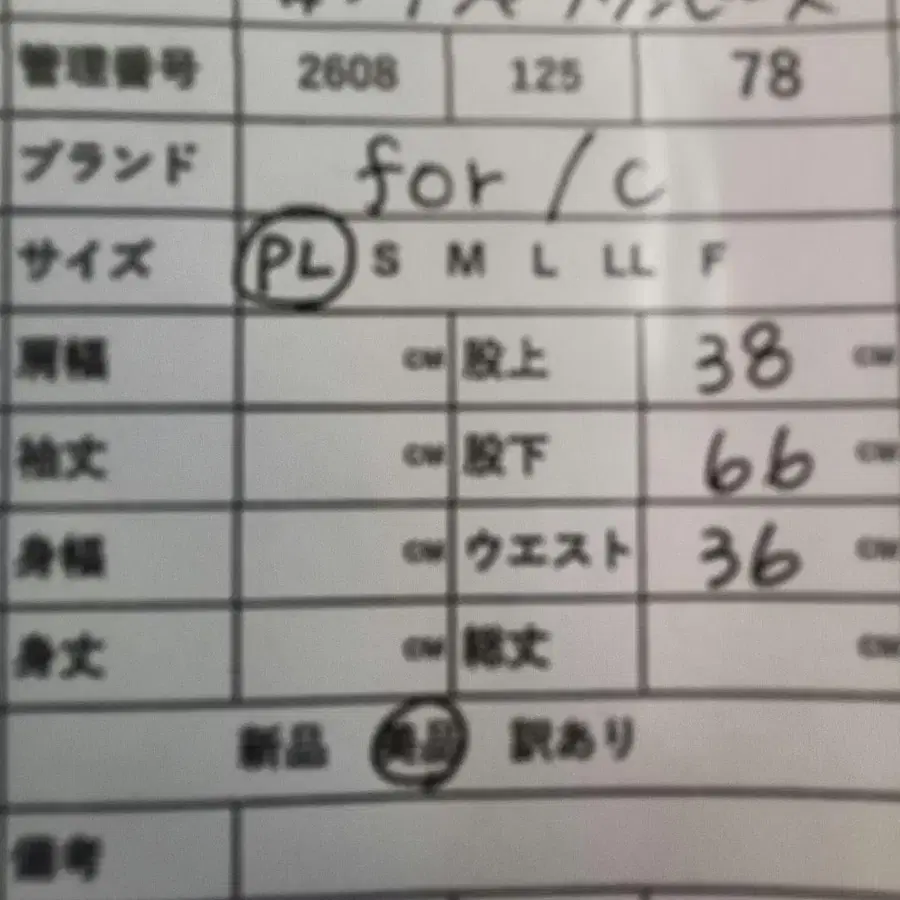 管理番号 2608 125 78
ブランド for/c
サイズ PL S M L LL F
肩幅 cm 股上 38 cm
袖丈 cm 股下 66 cm
身幅 cm ウエスト 36 cm
身丈 cm 総丈 cm
新品 美品 訳あり
備考